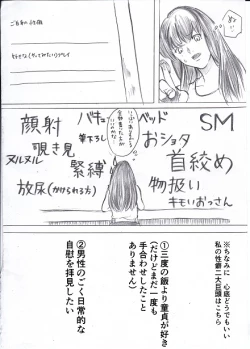 ご自身の性癖
好きな(やってみたい)プレイ
ぬぅ…
顔射
バキューム
ベッド
SM
筆下ろし
おショタ
覗き見
ヌルヌル
緊縛
首絞め
放尿(かけられる方)
物扱い
キモいおっさん
※ちなみに 心底どうでもいい
私の性癖二大巨頭はこちら
①三度の飯より童貞が好き
(だけどまだ一度も
手合わせしたこと
ありません)
②男性のごく日常的な
自慰を拝見したい